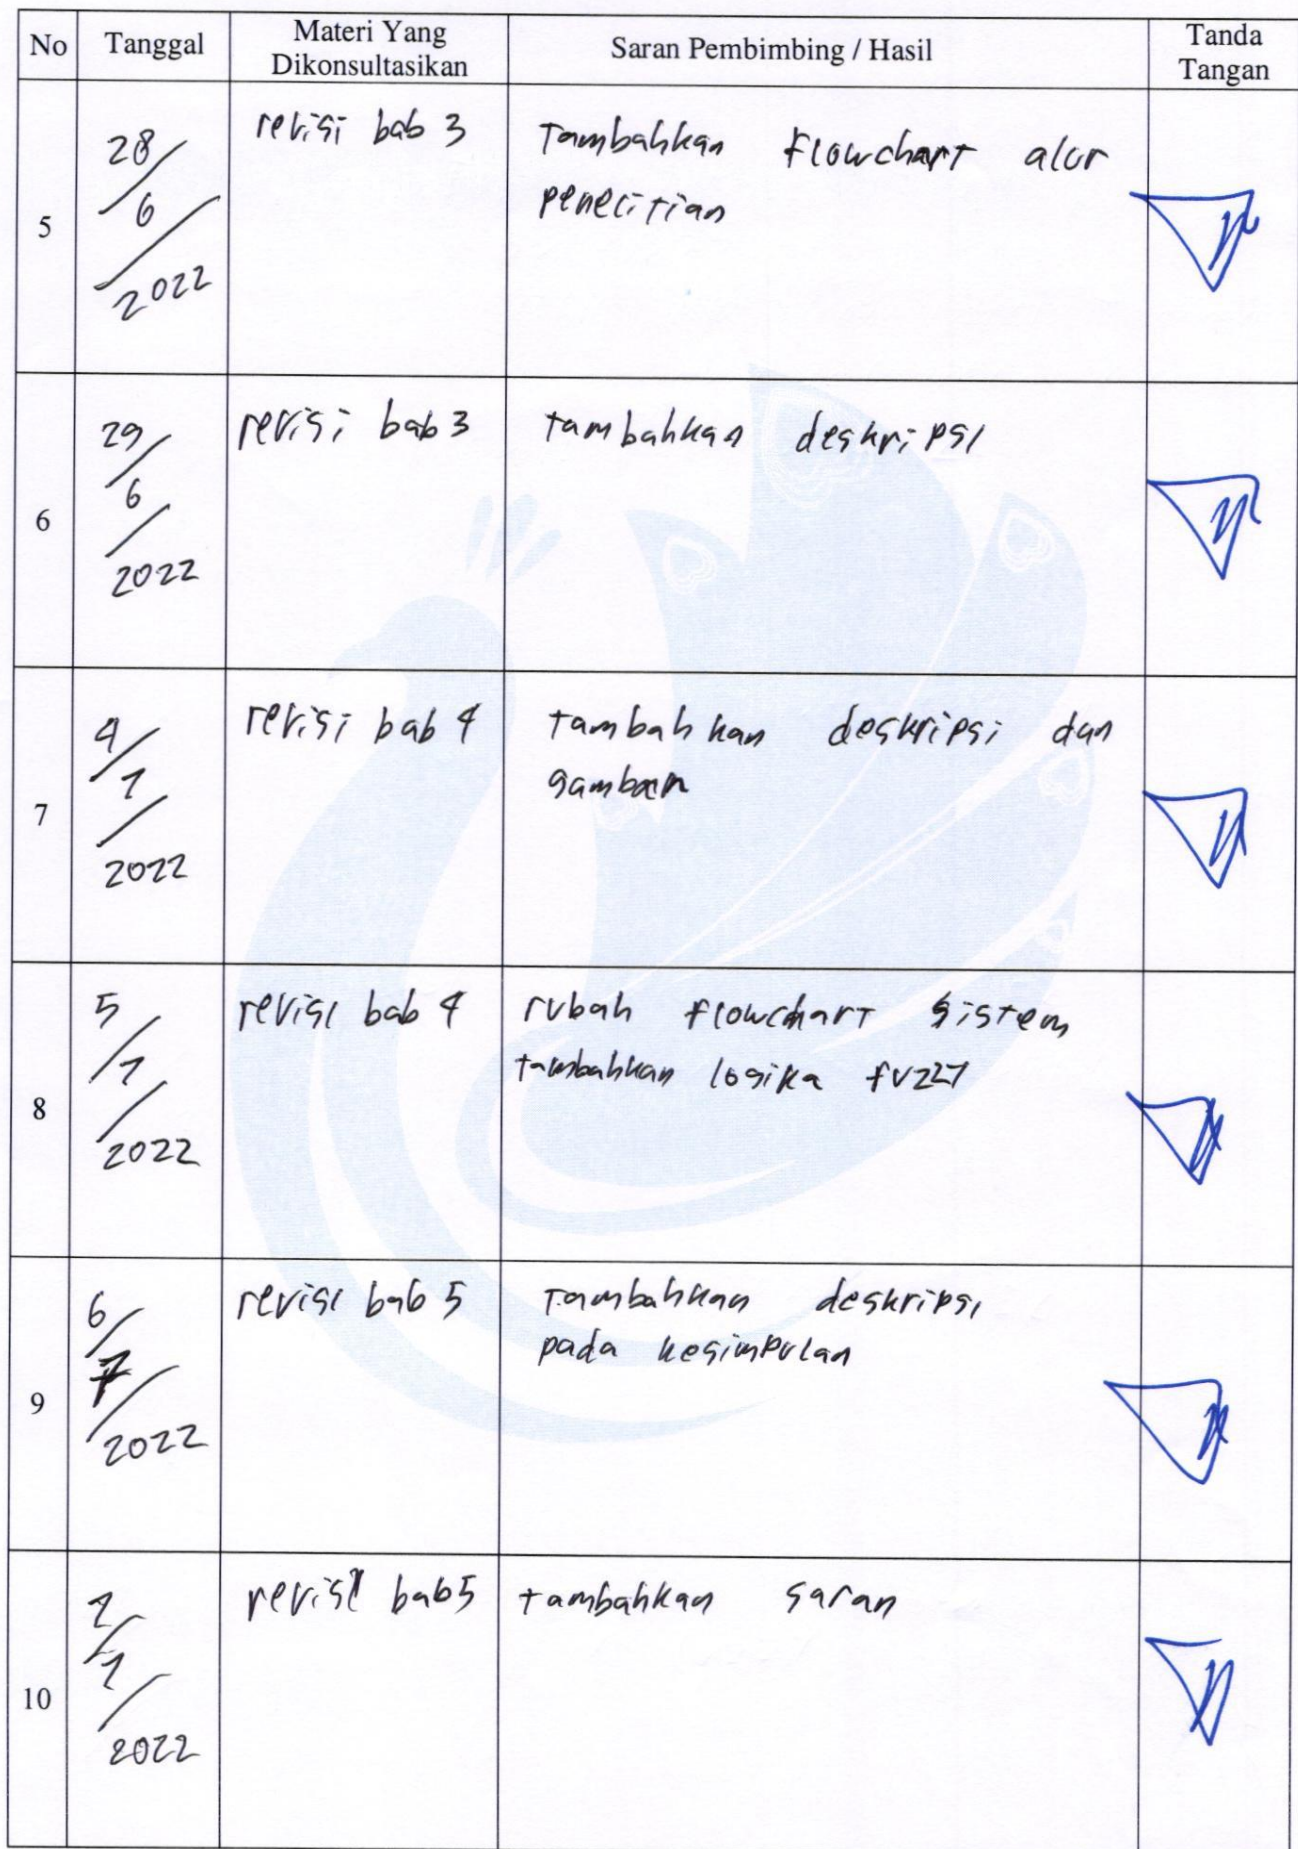 No Tanggal Materi Yang Dikonsultasikan Saran Pembimbing / Hasil Tanda Tangan
5 28/6/2022 revisi bab 3 Tambahkan flowchart alur
penelitian
6 29/6/2022 revisi bab 3 tambahkan deskripsi
7 4/7/2022 revisi bab 4 tambahkan deskripsi dan
gambar
8 5/7/2022 revisi bab 4 rubah flowchart sistem
tambahkan logika fuzzy
9 6/7/2022 revisi bab 5 Tambahkan deskripsi
pada kesimpulan
10 7/7/2022 revisi bab 5 tambahkan saran